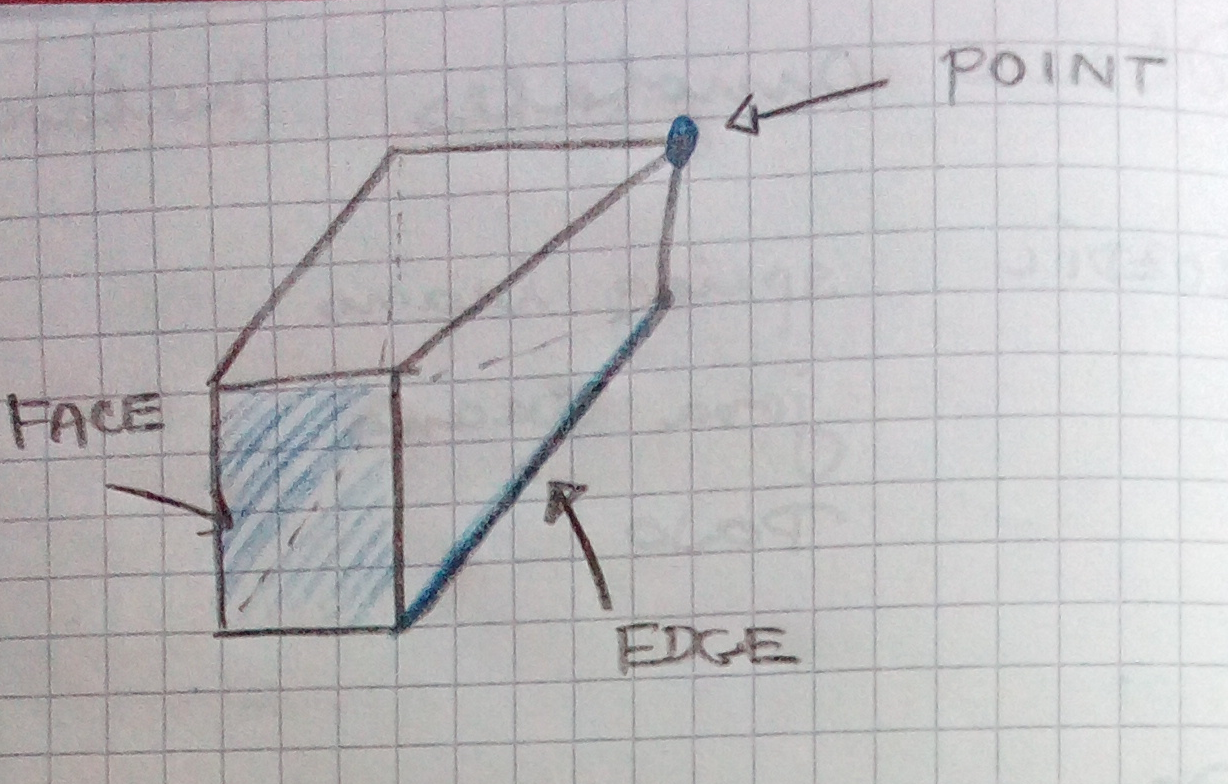 POINT
FACE
EDGE